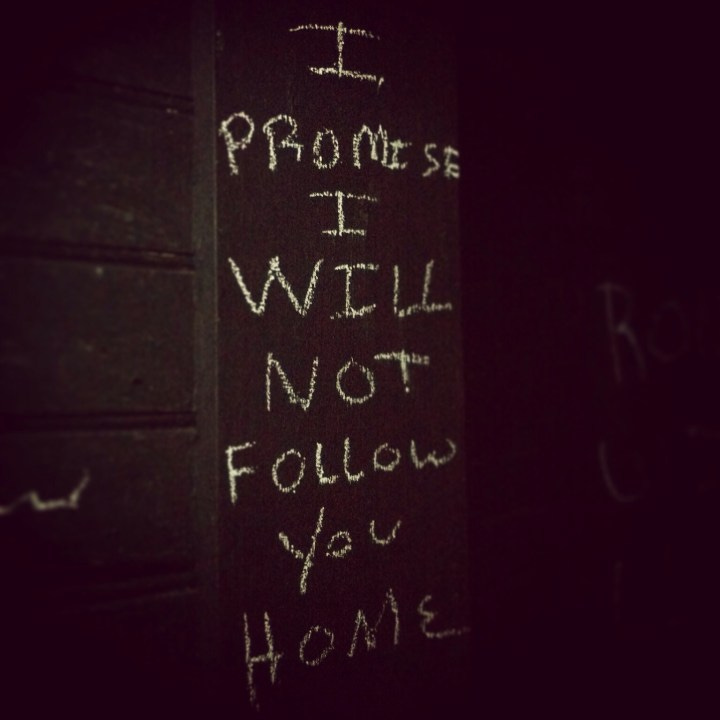 I
PROMISE
I
WILL
NOT
FOLLOW
YOU
HOME